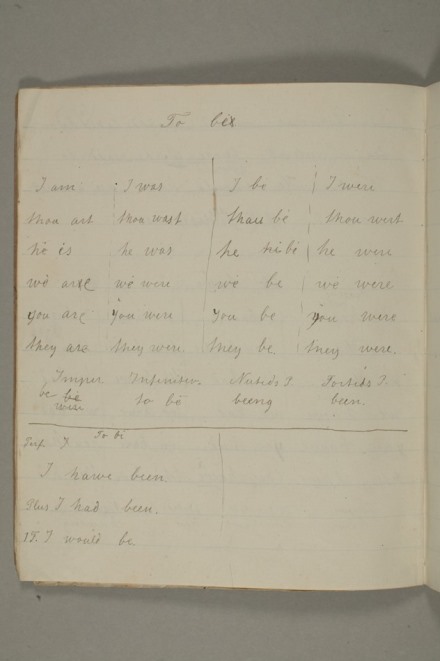 To be
I am I was I be I were
thou art thou wast thou be thou wert
he is he was he be he were
we are we were we be we were
you are you were you be you were
they are they were. they be they were.
Imper Infinitiv. Nutids P. Fortids P.
be be to be being been.
were
To be
I have been
Plus I had been.
1F. I would be.